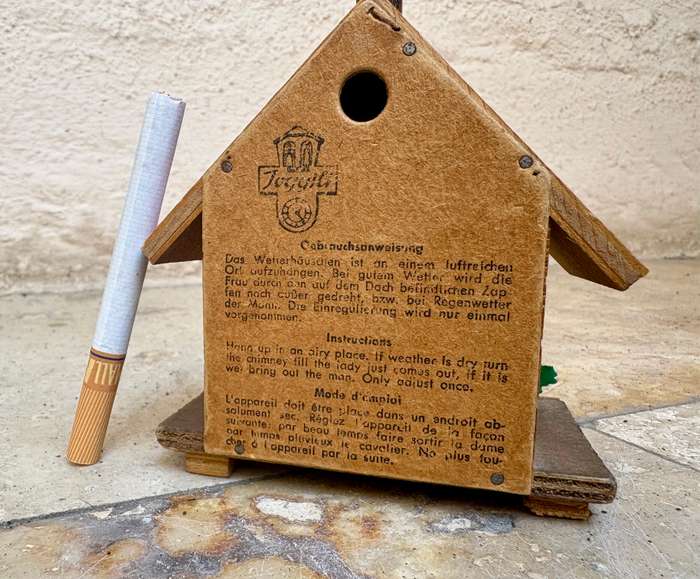 Gebrauchsanweisung
Das Wetterhäuschen ist an einem luftreichen
Ort aufzuhängen. Bei gutem Wetter wird die
Frau durch den auf dem Dach befindlichen Zap-
fen nach außer gedreht, bzw. bei Regenwetter
der Mann. Die Einregulierung wird nur einmal
vorgenommen.
Instructions
Hang up in an airy place. If weather is dry turn
the chimney till the lady just comes out, if it is
wet bring out the man. Only adjust once.
Mode d'emploi
L'appareil doit être place dans un endroit ab-
solument sec. Réglez l'appareil de la façon
suivante: par beau temps faire sortir la dame
par temps pluvieux le cavalier. Ne plus tou-
cher à l'appareil par la suite.